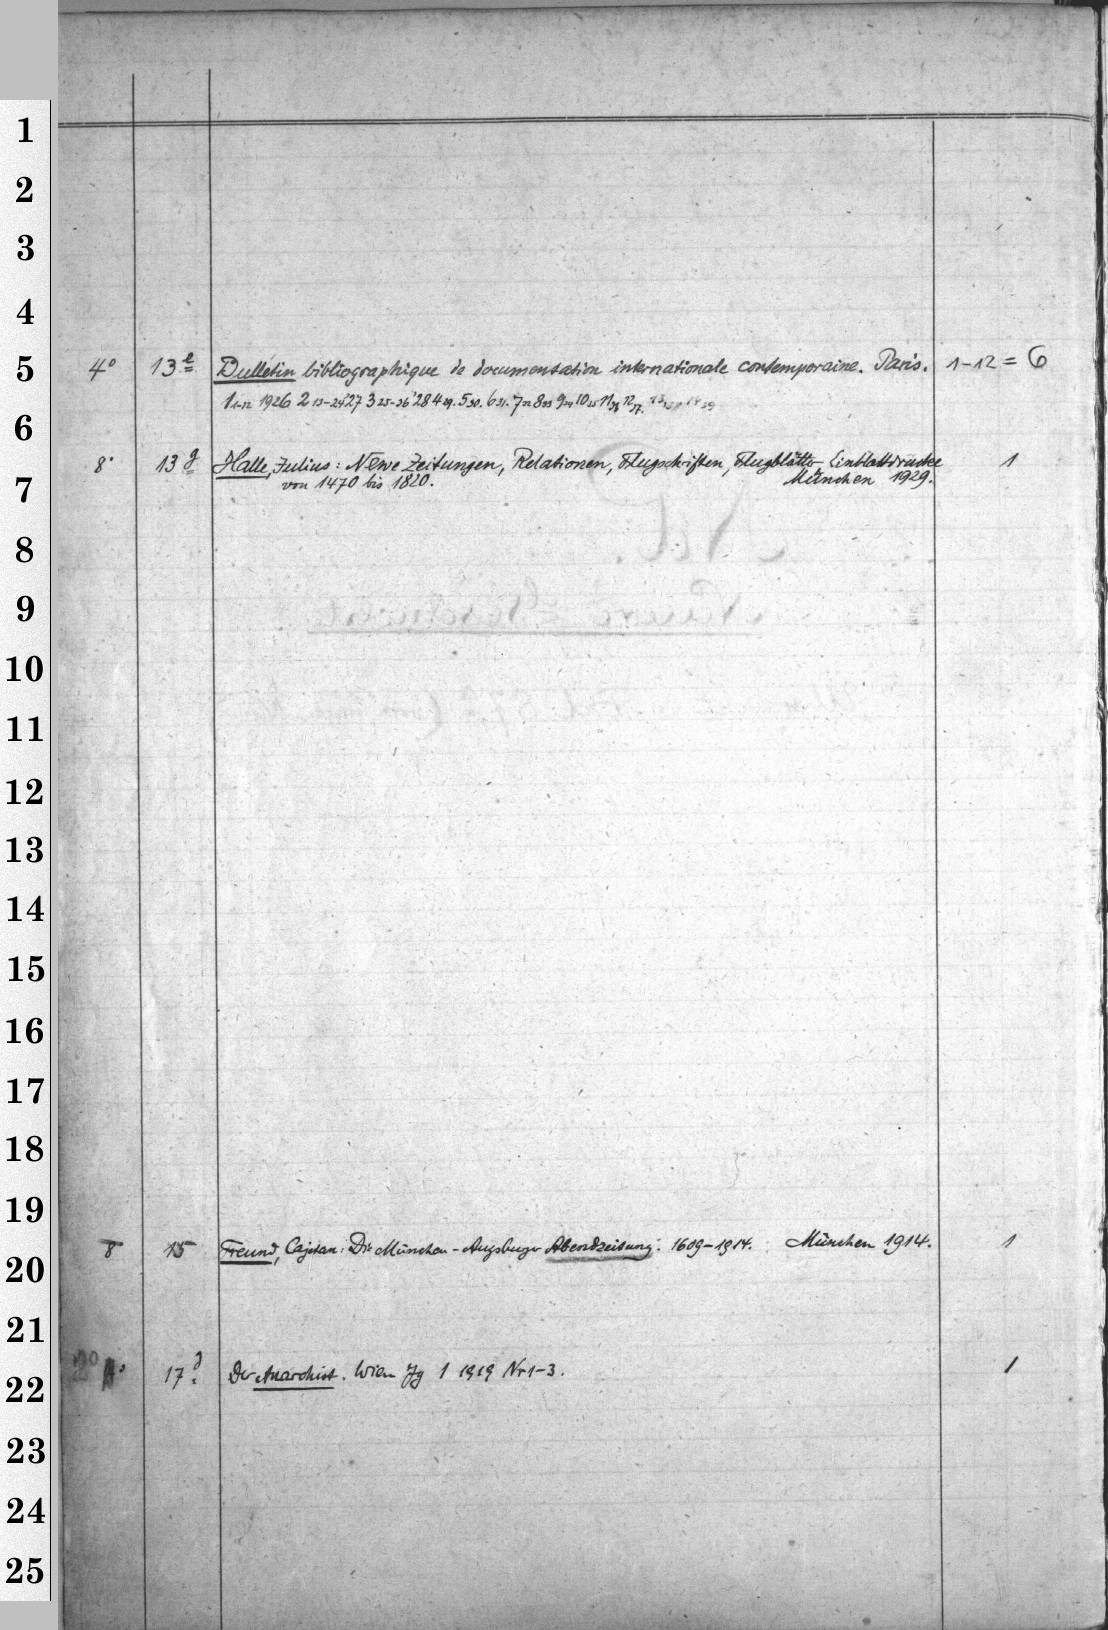 1
2
3
4
5
4° 13e Bulletin bibliographique de documentation internationale contemporaine. Paris. 1-12 = 6
1 1-12 1926 2 13-24 '27 3 25-36 '28 4 29. 5 30. 6 31. 7 32 8 33 9 34 10 35 11 36 12 37.
6
8° 13g Halle, Julius: Newe Zeitungen, Relationen, Flugschriften, Flugblätter Einblattdrucke 1
von 1470 bis 1820. München 1929.
7
8
9
10
11
12
13
14
15
16
17
18
19
8 15 Freund, Cajetan: Die München-Augsburger Abendzeitung. 1609-1914. München 1914. 1
20
21
2° 17d Der Anarchist. Wien Jg 1 1919 Nr 1-3. 1
22
23
24
25